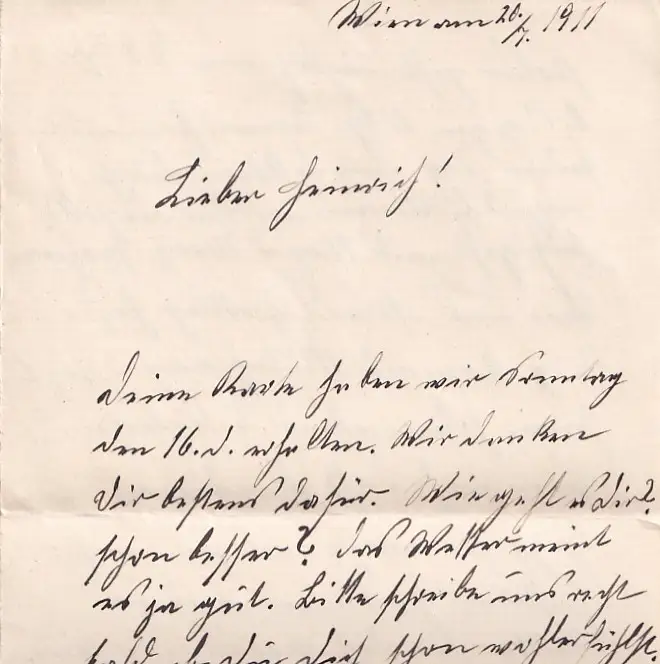 Wien am 20./7. 1911
Lieber Heinrich!
Deine Karte haben wir Sonntag
den 16. d. erhalten. Wir danken
Dir bestens dafür. Wie geht es Dir?
schon besser? Das Wetter meint
es ja gut. Bitte schreibe uns recht
bald ob Du Dich schon wohler fühlst.